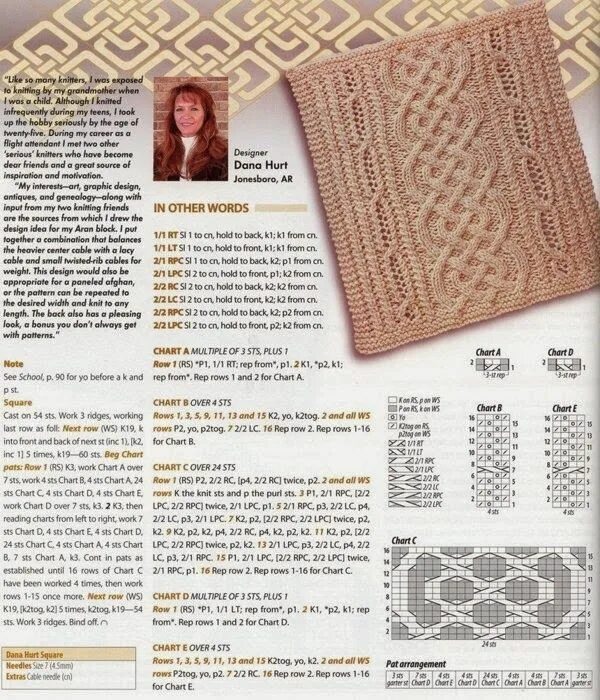 "Like so many knitters, I was exposed
to knitting by my grandmother when
I was a child. Although I knitted
infrequently during my teens, I took
up the hobby seriously by the age of
twenty-five. During my career as a
flight attendant I met two other
'serious' knitters who have become
dear friends and a great source of
inspiration and motivation.
"My interests—art, graphic design,
antiques, and genealogy—along with
input from my two knitting friends
are the sources from which I drew the
design idea for my Aran block. I put
together a combination that balances
the heavier center cable with a lacy
cable and small twisted-rib cables for
weight. This design would also be
appropriate for a paneled afghan,
or the pattern can be repeated to
the desired width and knit to any
length. The back also has a pleasing
look, a bonus you don't always get
with patterns."
Note
See School, p. 90 for yo before a k and
p st.
Square
Cast on 54 sts. Work 3 ridges, working
last row as foll: Next row (WS) K19, k
into front and back of next st (inc 1), [k2,
inc 1] 5 times, k19—60 sts. Beg Chart
pats: Row 1 (RS) K3, work Chart A over
7 sts, work 4 sts Chart B, 4 sts Chart A, 24
sts Chart C, 4 sts Chart D, 4 sts Chart E,
work Chart D over 7 sts, k3. 2 K3, then
reading charts from left to right, work 7
sts Chart D, 4 sts Chart E, 4 sts Chart D,
24 sts Chart C, 4 sts Chart A, 4 sts Chart
B, 7 sts Chart A, k3. Cont in pats as
established until 16 rows of Chart C
have been worked 4 times, then work
rows 1-15 once more. Next row (WS)
K19, [k2tog, k2] 5 times, k2tog, k19—54
sts. Work 3 ridges. Bind off.
Dana Hurt Square
Needles Size 7 (4.5mm)
Extras Cable needle (cn)
Designer
Dana Hurt
Jonesboro, AR
IN OTHER WORDS
1/1 RT Sl 1 to cn, hold to back, k1; k1 from cn.
1/1 LT Sl 1 to cn, hold to front, k1; k1 from cn.
2/1 RPC Sl 1 to cn, hold to back, k2; p1 from cn.
2/1 LPC Sl 2 to cn, hold to front, p1; k2 from cn.
2/2 RC Sl 2 to cn, hold to back, k2; k2 from cn.
2/2 LC Sl 2 to cn, hold to front, k2; k2 from cn.
2/2 RPC Sl 2 to cn, hold to back, k2; p2 from cn.
2/2 LPC Sl 2 to cn, hold to front, p2; k2 from cn.
CHART A MULTIPLE OF 3 STS, PLUS 1
Row 1 (RS) *P1, 1/1 RT; rep from*, p1. 2 K1, *p2, k1;
rep from*. Rep rows 1 and 2 for Chart A.
CHART B OVER 4 STS
Rows 1, 3, 5, 9, 11, 13 and 15 K2, yo, k2tog. 2 and all WS
rows P2, yo, p2tog. 7 2/2 LC. 16 Rep row 2. Rep rows 1-16
for Chart B.
CHART C OVER 24 STS
Row 1 (RS) P2, 2/2 RC, [p4, 2/2 RC] twice, p2. 2 and all WS
rows K the knit sts and p the purl sts. 3 P1, 2/1 RPC, [2/2
LPC, 2/2 RPC] twice, 2/1 LPC, p1. 5 2/1 RPC, p3, 2/2 LC, p4,
2/2 LC, p3, 2/1 LPC. 7 K2, p2, [2/2 RPC, 2/2 LPC] twice, p2,
k2. 9 K2, p2, k2, p4, 2/2 RC, p4, k2, p2, k2. 11 K2, p2, [2/2
LPC, 2/2 RPC] twice, p2, k2. 13 2/1 LPC, p3, 2/2 LC, p4, 2/2
LC, p3, 2/1 RPC. 15 P1, 2/1 LPC, [2/2 RPC, 2/2 LPC] twice,
2/1 RPC, p1. 16 Rep row 2. Rep rows 1-16 for Chart C.
CHART D MULTIPLE OF 3 STS, PLUS 1
Row 1 (RS) *P1, 1/1 LT; rep from*, p1. 2 K1, *p2, k1; rep
from*. Rep rows 1 and 2 for Chart D.
CHART E OVER 4 STS
Rows 1, 3, 5, 9, 11, 13 and 15 K2tog, yo, k2. 2 and all WS
rows P2tog, yo, p2. 7 2/2 RC. 16 Rep row 2. Rep rows 1-16
for Chart E.
Chart A
2
1
3-st rep
Chart D
2
1
3-st rep
K on RS, p on WS
P on RS, k on WS
Yo
K2tog on RS,
p2tog on WS
1/1 RT
1/1 LT
2/1 RPC
2/1 LPC
2/2 RC
2/2 LC
2/2 RPC
2/2 LPC
Chart B
16
14
12
10
8
6
4
2
4 sts
Chart E
16
14
12
10
8
6
4
2
4 sts
Chart C
16
14
12
10
8
6
4
2
24 sts
Pat arrangement
3 sts garter st
7 sts Chart D
4 sts Chart E
4 sts Chart D
24 sts Chart C
4 sts Chart A
4 sts Chart B
7 sts Chart A
3 sts garter st